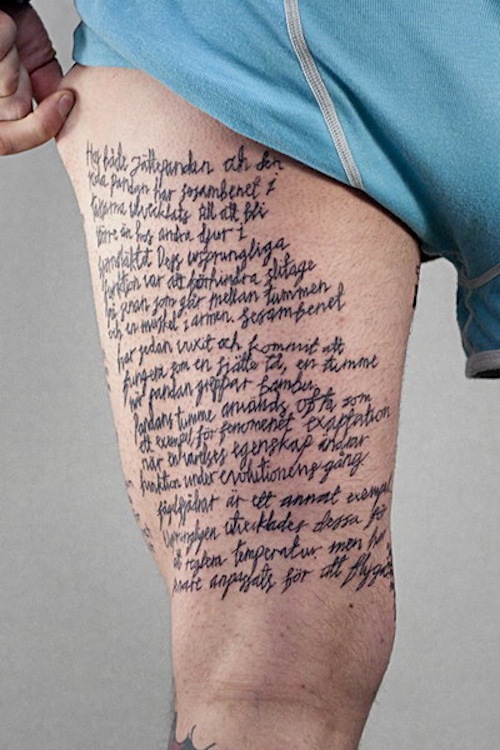 Hos både jättepandan och den
röda pandan har sesambenet i
tassarna utvecklats till att bli
större än hos andra djur i
björnsläktet Dess ursprungliga
funktion var att förhindra slitage
på senan som går mellan tummen
och en muskel i armen. Sesambenet
har sedan vuxit och kommit att
fungera som en sjätte tå, en tumme
när pandan greppar bambu.
Pandans tumme används ofta som
ett exempel för fenomenet exaptation
när en varelses egenskap ändrar
funktion under evolutionens gång
fågelfjädrar är ett annat exempel
Ursprungligen utvecklades dessa för
att reglera temperatur men har
senare anpassats för att flyga